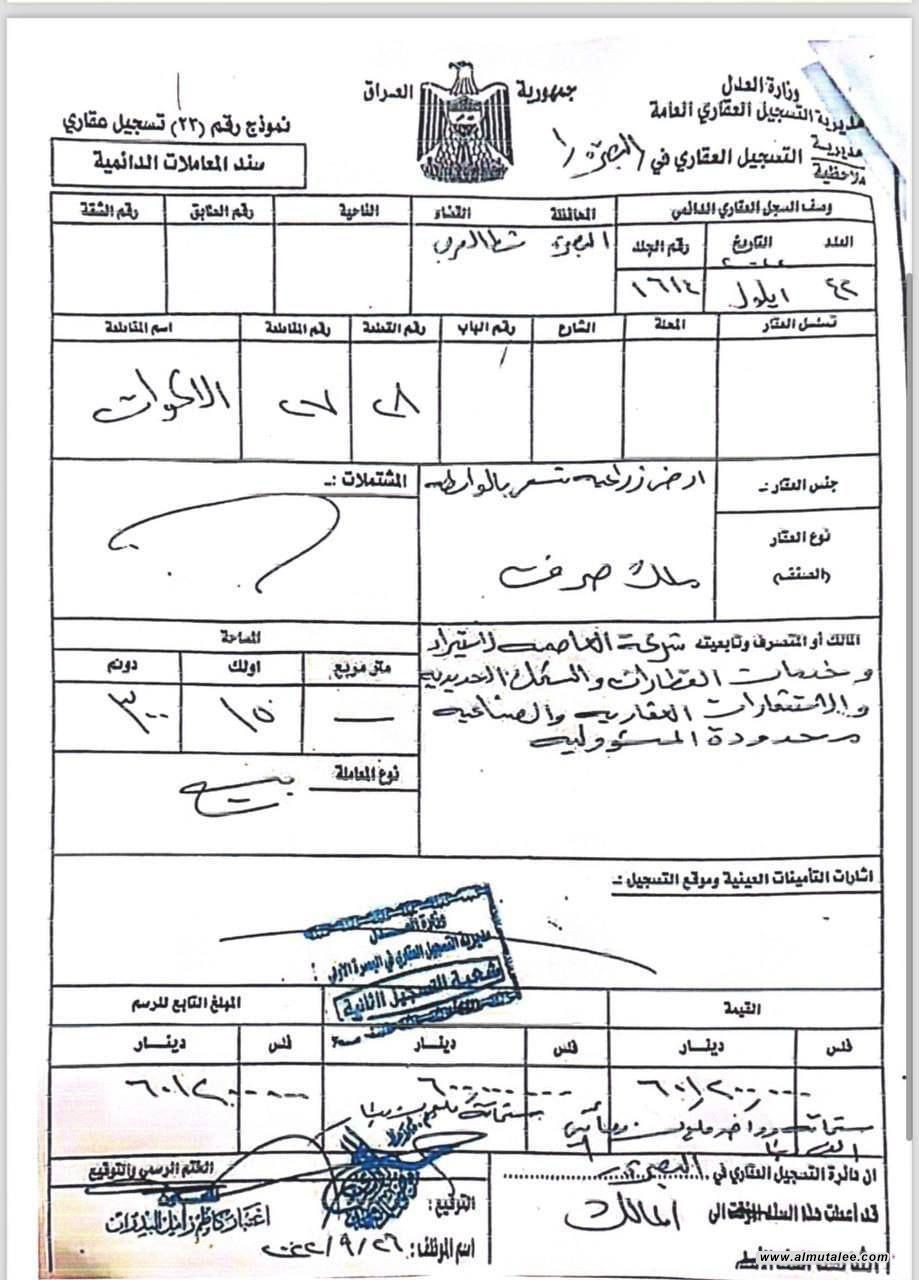 وزارة العدل
مديرية التسجيل العقاري العامة
مديرية
ملاحظية
التسجيل العقاري في البصرة ١
جمهورية العراق
نموذج رقم (٢٣) تسجيل عقاري
سند المعاملات الدائمية
وصف السجل العقاري الدائمي
المحافظة
القضاء
الناحية
رقم الطابق
رقم الشقة
العدد
التاريخ
رقم الجلد
البصرة
شط العرب
ايلول
١٦١٤
تسلسل العقار
المحلة
الشارع
رقم الباب
رقم القطعة
رقم المقاطعة
اسم المقاطعة
٢٨
٢٧
جنس العقار :-
ارض زراعية تسقى بالواسطة
المشتملات :-
نوع العقار
(الصنف)
ملك صرف
المالك أو المتصرف وتابعيته شركة العاصمة لاستيراد
وخدمات القطارات والسكك الحديدية
والاستشارات العقارية والصناعية
محدودة المسؤولية
المساحة
متر مربع
اولك
دونم
—
١٥
٣٠٠
نوع المعاملة
بيع
اشارات التأمينات العينية وموقع التسجيل :-
وزارة العدل
مديرية التسجيل العقاري في البصرة الاولى
شعبة التسجيل الثانية
القيمة
المبلغ التابع للرسم
فلس
دينار
فلس
دينار
فلس
دينار
ان دائرة التسجيل العقاري في البصرة ١
قد اعطت هذا السند الى المالك
الختم الرسمي والتوقيع
التوقيع :
اسم الموظف :
www.almutalee.com